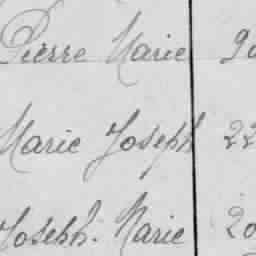 Pierre Marie 90
Marie Joseph 22
Joseph. Marie 20